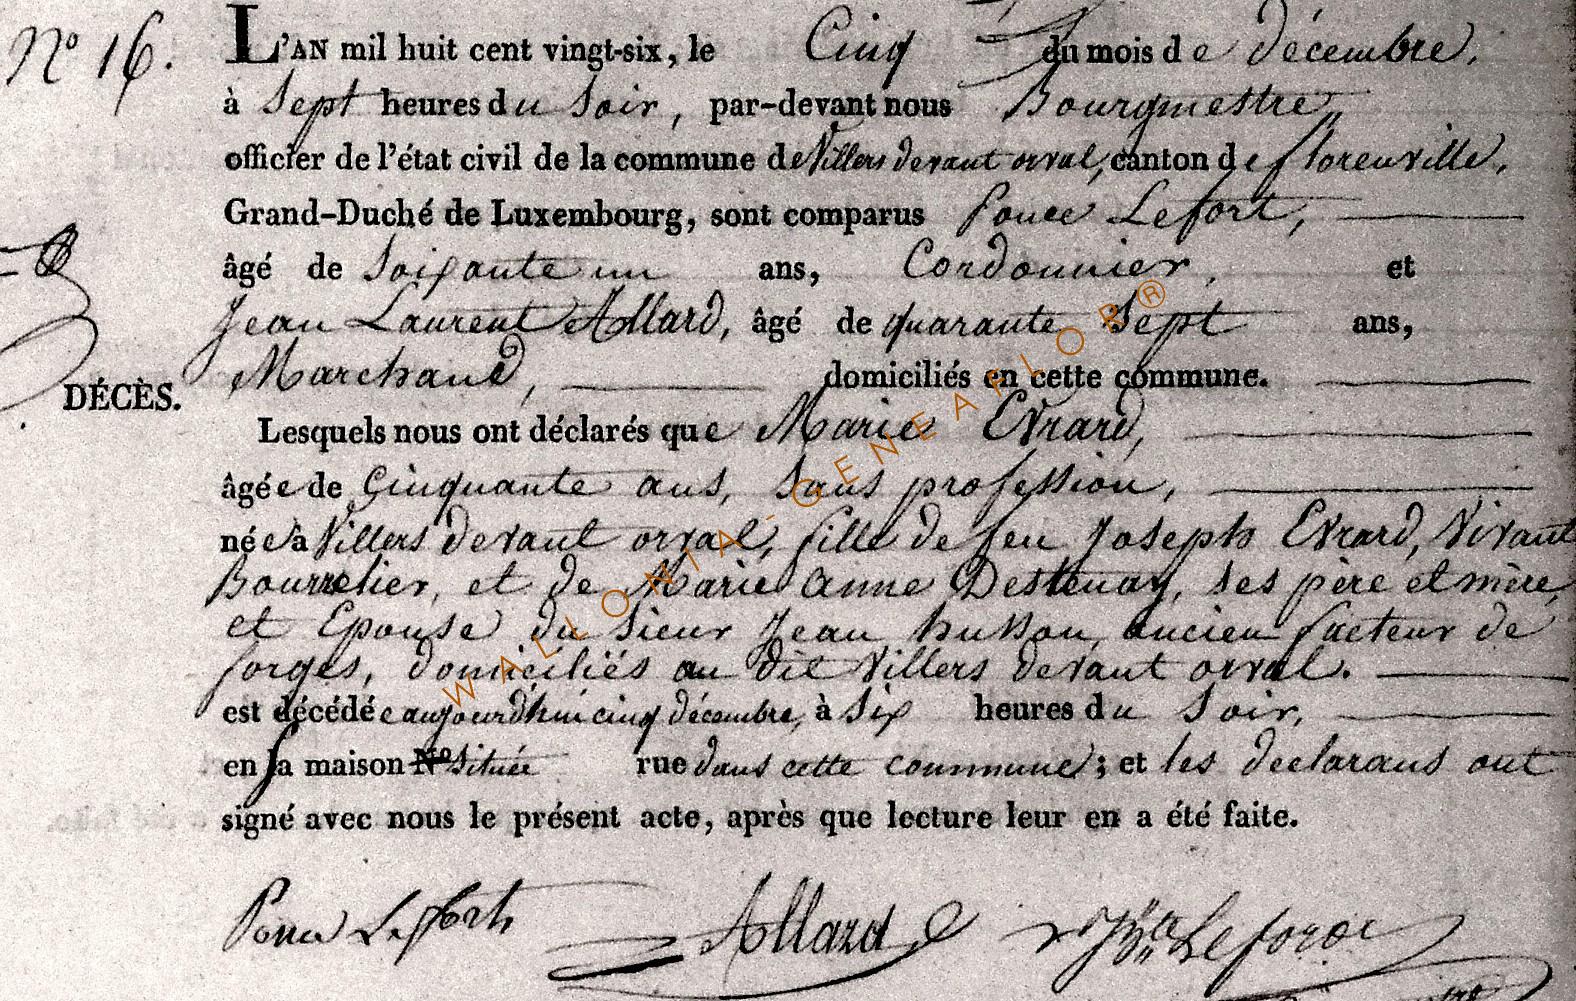 N.º 16.
L'AN mil huit cent vingt-six, le Cinq du mois de décembre,
à Sept heures du Soir, par-devant nous Bourgmestre,
officier de l'état civil de la commune de Villers devant orval, canton de florenville,
Grand-Duché de Luxembourg, sont comparus Ponce Lefort,
âgé de Soixante un ans, Cordonnier, et
Jean Laurent Allard, âgé de quarante Sept ans,
Marchand, domiciliés en cette commune.
DÉCÈS.
Lesquels nous ont déclarés que Marie Evrard,
âgée de Cinquante ans, Sans profession,
née à Villers devant orval, fille de feu Joseph Evrard, Vivant
Bourrelier, et de Marie Anne Destenay, ses père et mère,
et Epouse du Sieur Jean husson, ancien facteur de
forges, domiciliés au dit Villers devant orval.
est décédée aujourd'hui cinq décembre, à Six heures du Soir,
en la maison N.º située rue dans cette commune; et les declarans ont
signé avec nous le présent acte, après que lecture leur en a été faite.
Ponce Lefort Allard Lefort
WALLONIA-GENEAFLOR®